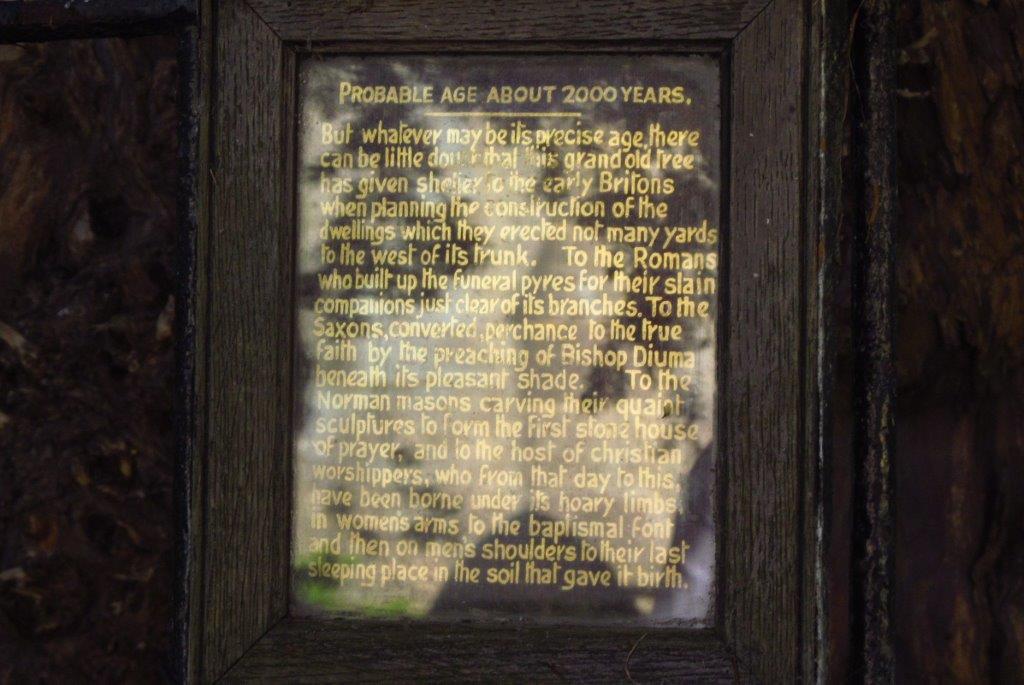 PROBABLE AGE ABOUT 2000 YEARS.
But whatever may be its precise age, there
can be little doubt that this grand old tree
has given shelter to the early Britons
when planning the construction of the
dwellings which they erected not many yards
to the west of its trunk. To the Romans
who built up the funeral pyres for their slain
companions just clear of its branches. To the
Saxons, converted, perchance to the true
faith by the preaching of Bishop Diuma
beneath its pleasant shade. To the
Norman masons carving their quaint
sculptures to form the first stone house
of prayer, and to the host of christian
worshippers, who from that day to this,
have been borne under its hoary limbs,
in womens arms to the baptismal font
and then on men's shoulders to their last
sleeping place in the soil that gave it birth.